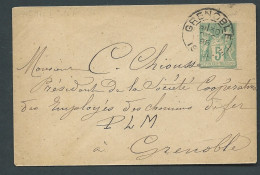 GRENOBLE
5
Monsieur C. Chiousse
Président de la Société Coopérative
des Employés des chemins de fer
PLM
à Grenoble